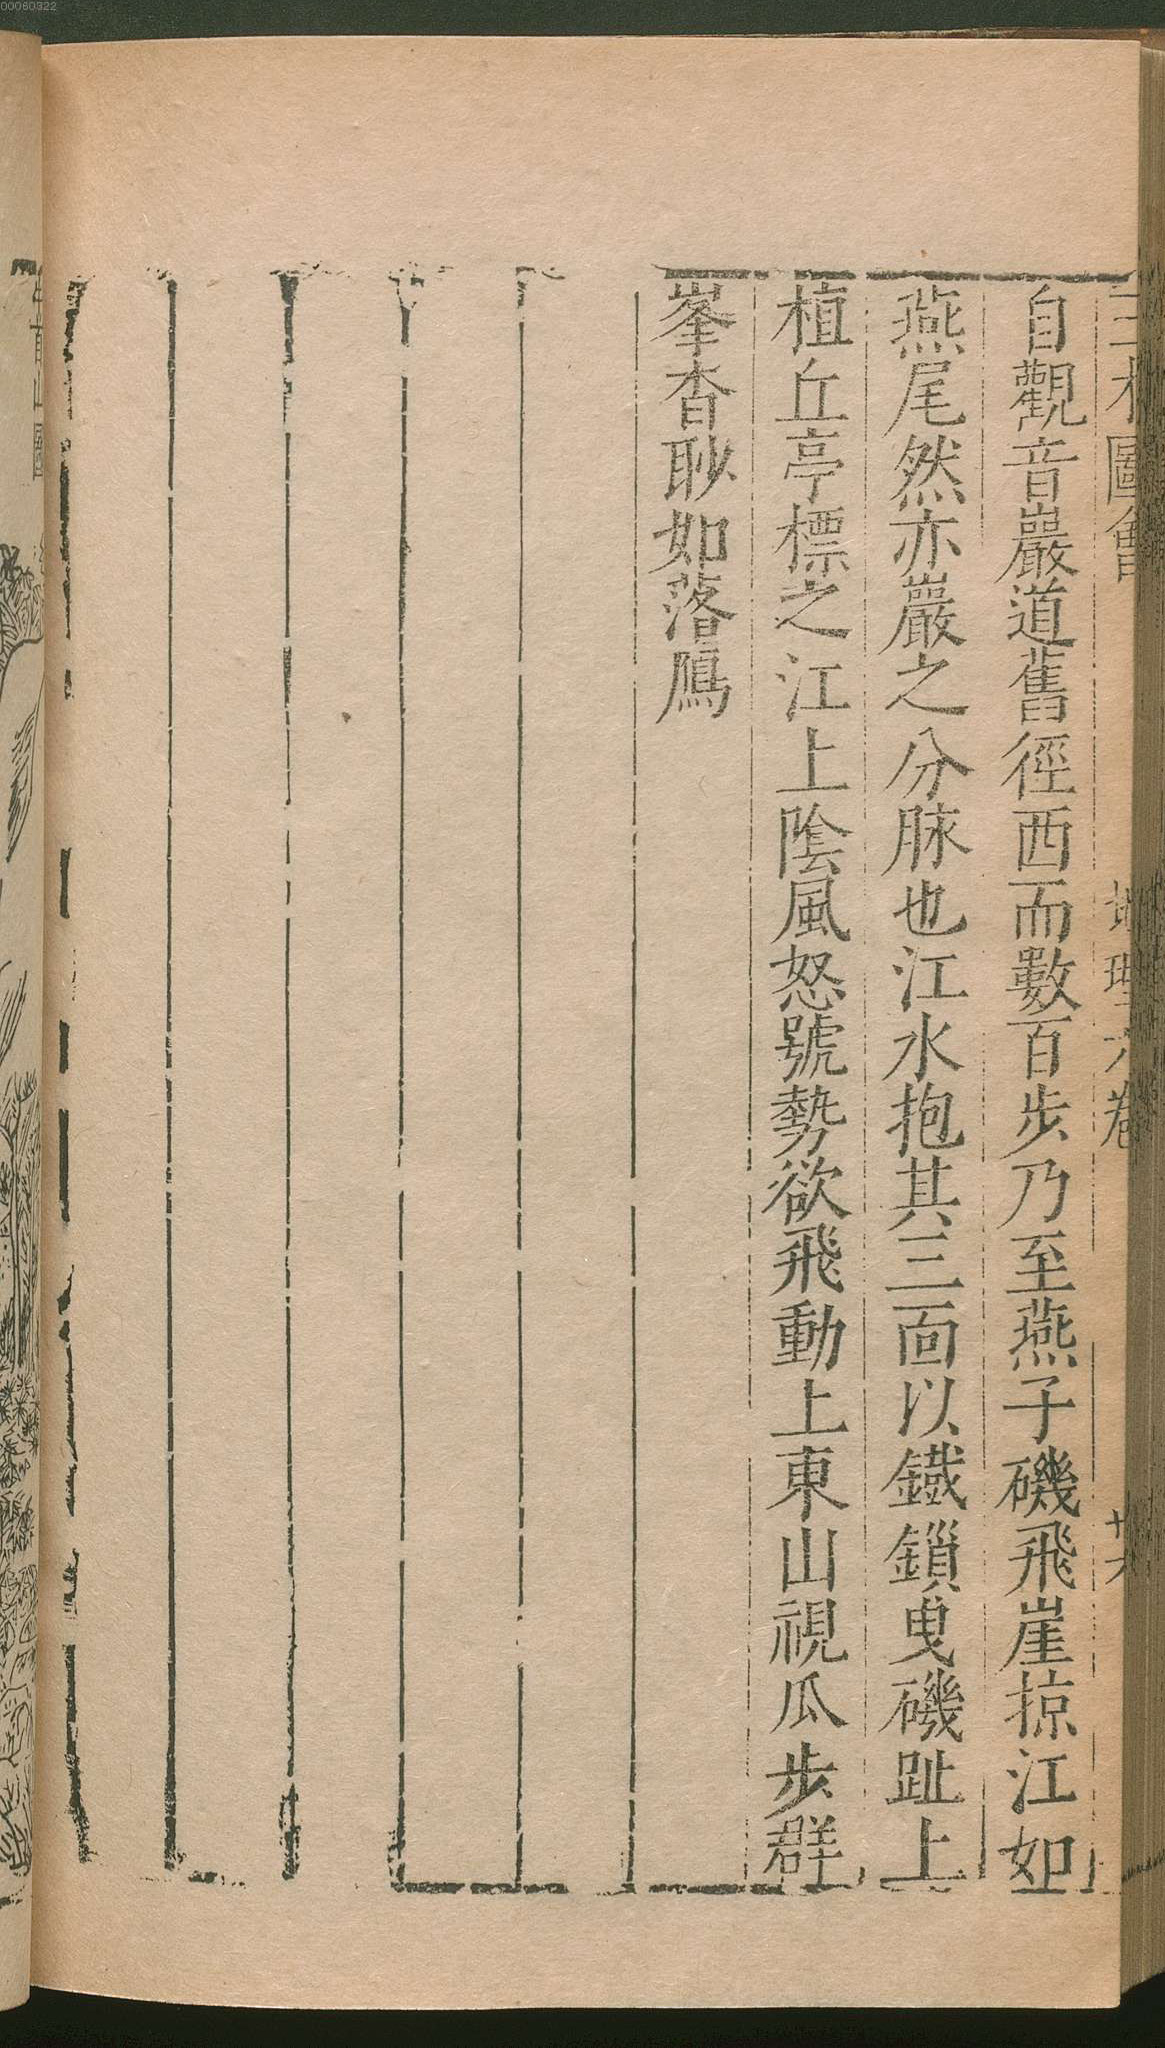 00060322
三才圖會 地理六卷 廿六
自觀音巖道舊徑西而數百步乃至燕子磯飛崖掠江如
燕尾然亦巖之分脉也江水抱其三面以鐵鎖曳磯趾上
植丘亭標之江上陰風怒號勢欲飛動上東山視瓜步群
峯杳眇如落鴈
牛首山圖